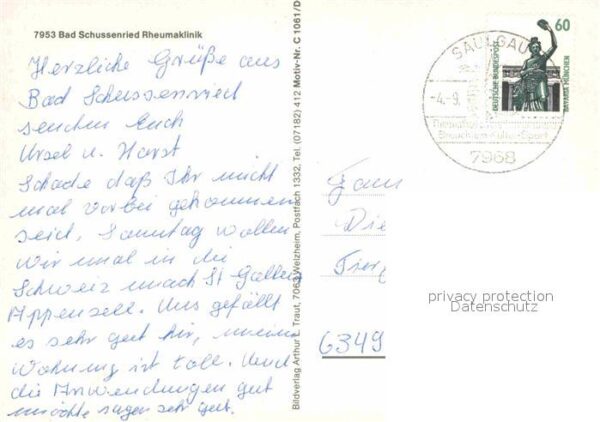 7953 Bad Schussenried Rheumaklinik
Herzliche Grüße aus
Bad Schussenried
senden Euch
Ursel u. Horst
Schade daß Ihr nicht
mal vorbei gekommen
seid, Sonntag wollen
wir mal in die
Schweiz nach St Gallen
Appenzell. Uns gefällt
es sehr gut hir, meine
Wohnung ist toll. Und
die Anwendungen gut
möchte sagen sehr gut.
Bildverlag Arthur F. Traut, 7063 Welzheim, Postfach 1332, Tel. (07182) 412 Motiv-Nr. C 1061/D
SAULGAU
-4.-9.
Thermalbad
Brauchtum-Kultur-Sport
7968
60
DEUTSCHE BUNDESPOST
BAVARIA MÜNCHEN
Fam
Die
6349
privacy protection
Datenschutz